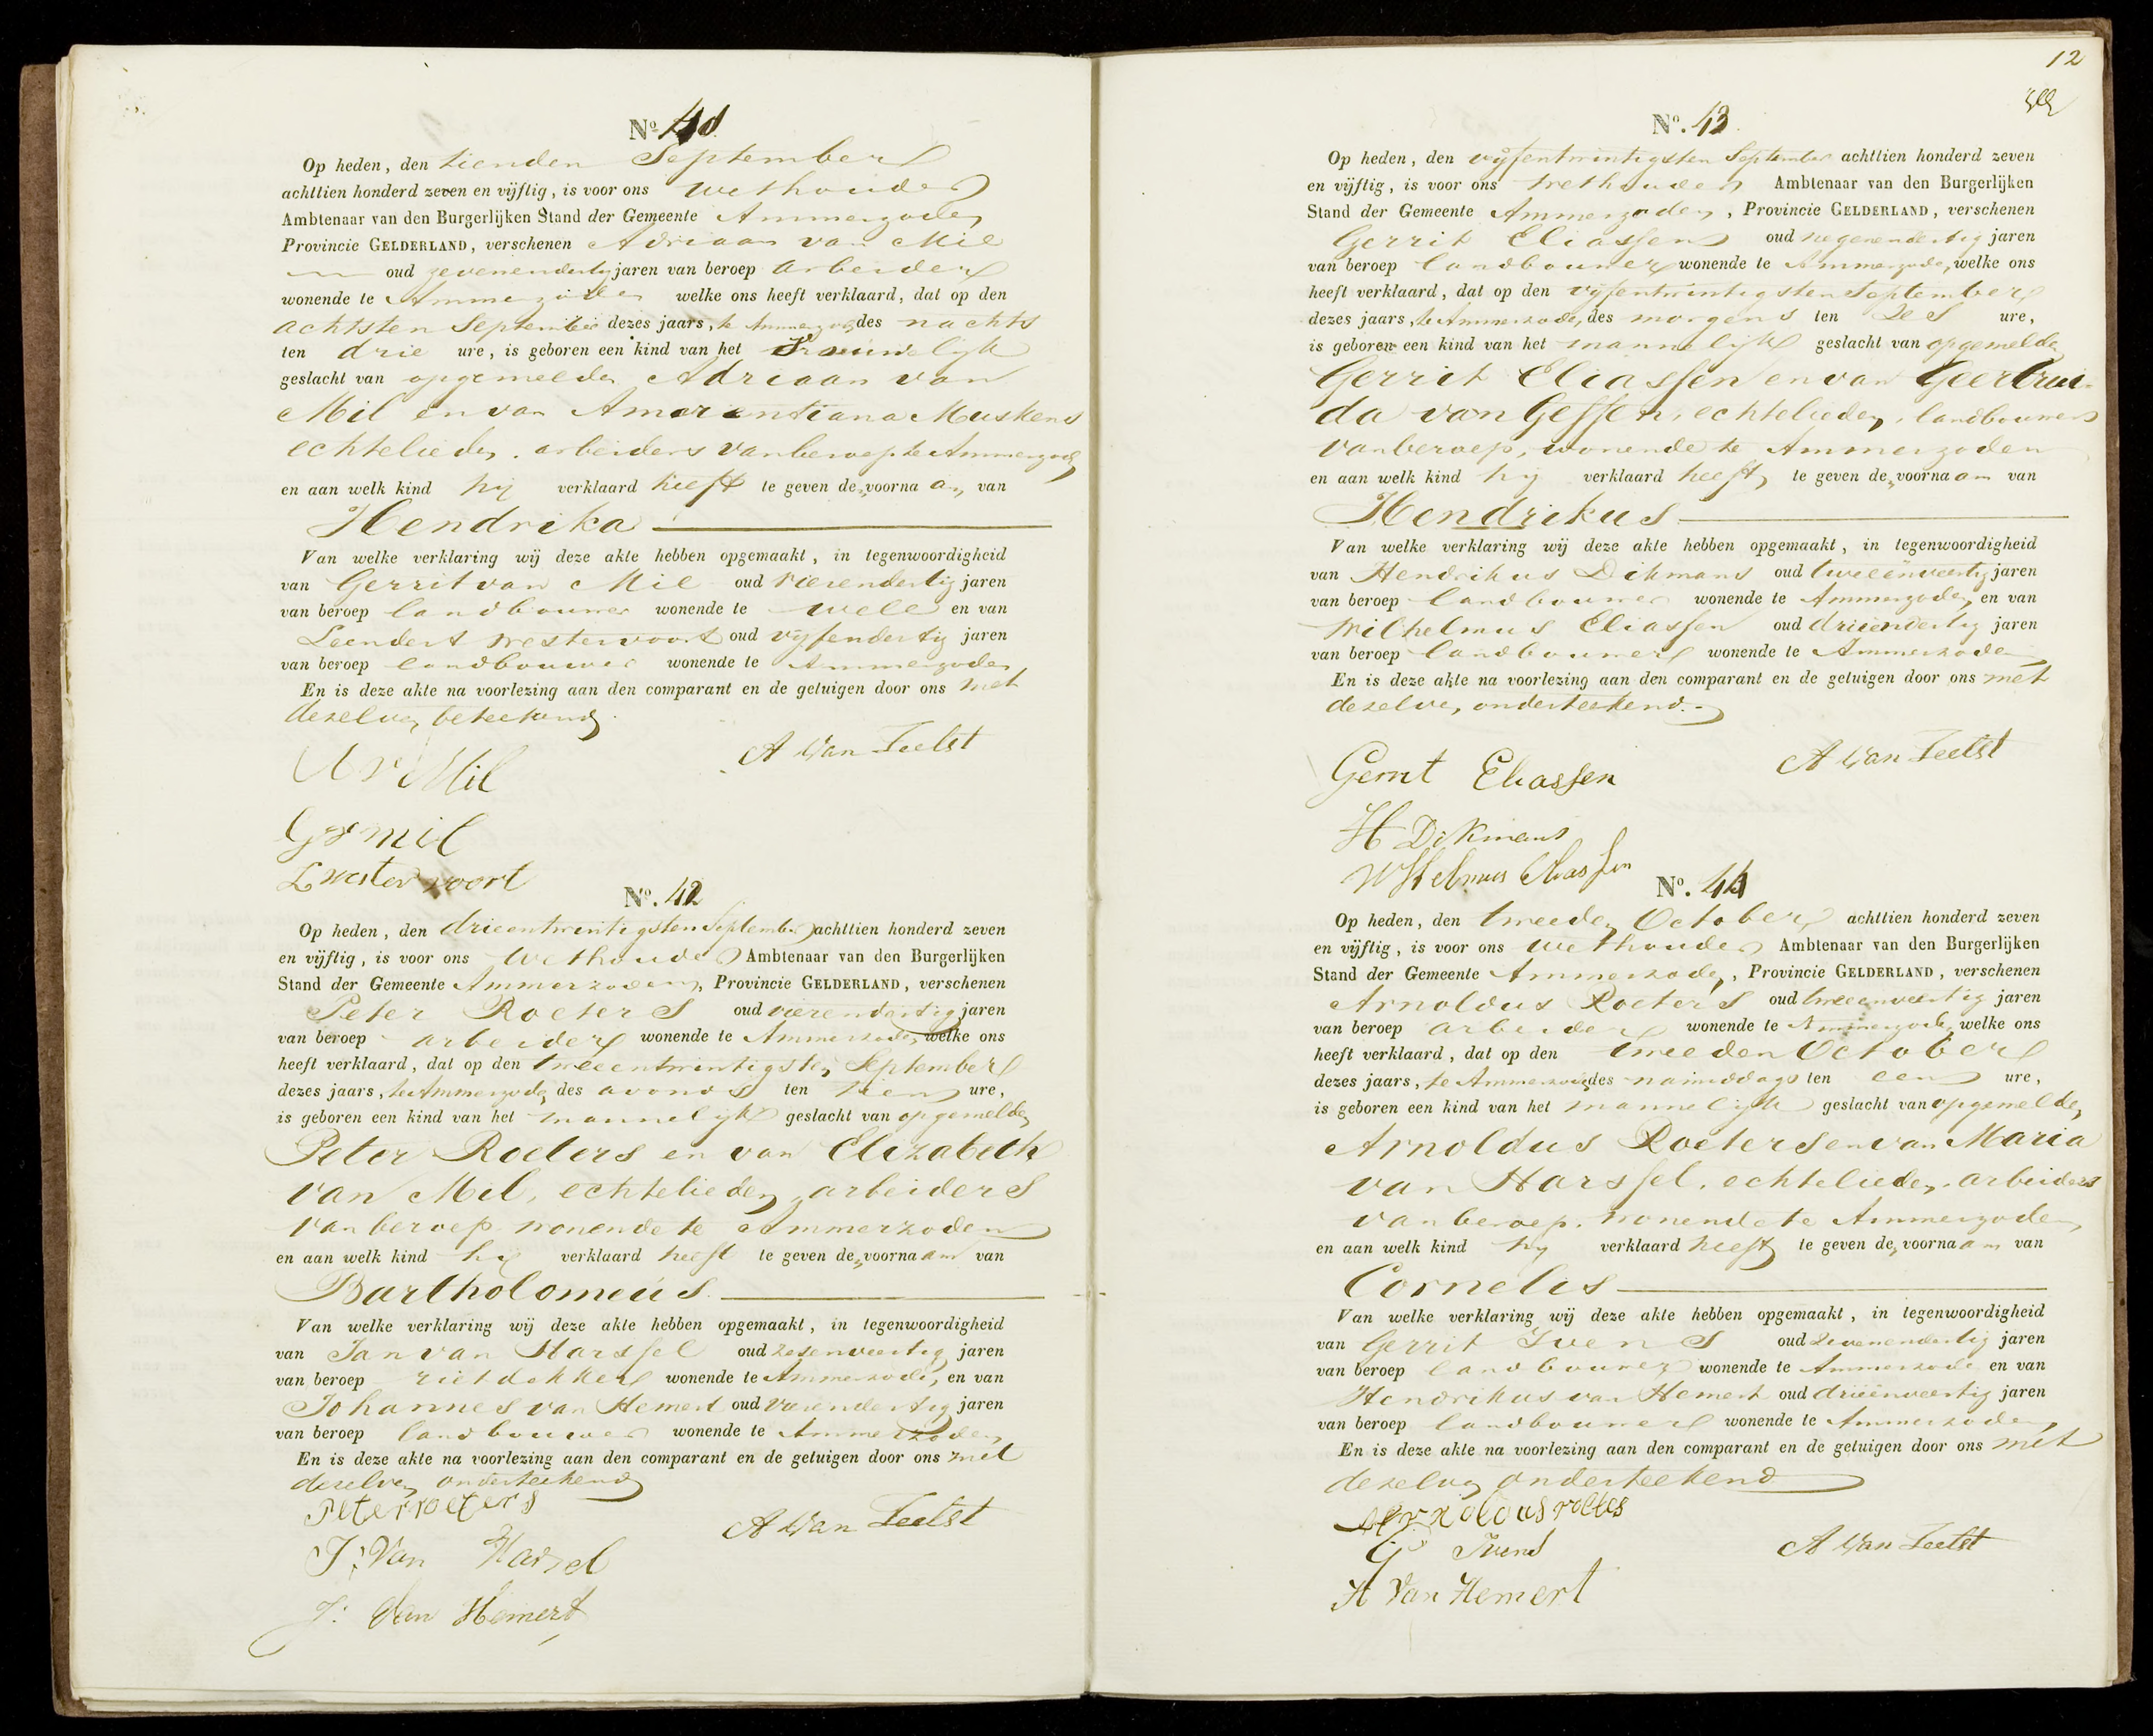 No. 41.
Op heden, den tienden September
achttien honderd zeven en vijftig, is voor ons Wethouder
Ambtenaar van den Burgerlijken Stand der Gemeente Ammerzoden
Provincie GELDERLAND, verschenen Adriaan van Mil
oud zevenendertig jaren van beroep arbeider
wonende te Ammerzoden welke ons heeft verklaard, dat op den
achtsten September dezes jaars, te Ammerzoden des nachts
ten drie ure, is geboren een kind van het Vrouwelijk
geslacht van opgemelden Adriaan van
Mil en van Amerentiana Muskens
echtelieden, arbeiders van beroep te Ammerzoden
en aan welk kind hij verklaard heeft te geven den voornaam van
Hendrika
Van welke verklaring wij deze akte hebben opgemaakt, in tegenwoordigheid
van Gerrit van Mil oud vierendertig jaren
van beroep landbouwer wonende te Well en van
Leendert Westervoort oud vijfendertig jaren
van beroep landbouwer wonende te Ammerzoden
En is deze akte na voorlezing aan den comparant en de getuigen door ons met
dezelven geteekend
A v Mil
A Van Teelst
G v mil
L westervoort
No. 42
Op heden, den drieentwintigsten September achttien honderd zeven
en vijftig, is voor ons Wethouder Ambtenaar van den Burgerlijken
Stand der Gemeente Ammerzoden, Provincie GELDERLAND, verschenen
Peter Roeters oud vierendertig jaren
van beroep arbeider wonende te Ammerzoden welke ons
heeft verklaard, dat op den tweeentwintigsten September
dezes jaars, te Ammerzoden des avonds ten tien ure,
is geboren een kind van het mannelijk geslacht van opgemelden
Peter Roeters en van Elizabeth
van Mil, echtelieden, arbeiders
van beroep wonende te Ammerzoden
en aan welk kind hij verklaard heeft te geven den voornaam van
Bartholomeus
Van welke verklaring wij deze akte hebben opgemaakt, in tegenwoordigheid
van Jan van Harssel oud zesenveertig jaren
van beroep rietdekker wonende te Ammerzoden, en van
Johannes van Hemert oud vierendertig jaren
van beroep landbouwer wonende te Ammerzoden
En is deze akte na voorlezing aan den comparant en de getuigen door ons met
dezelven onderteekend
Peter roeters
A Van Teelst
J: Van Harsel
J: Van Hemert
12
No. 43.
Op heden, den vijfentwintigsten September achttien honderd zeven
en vijftig, is voor ons Wethouder Ambtenaar van den Burgerlijken
Stand der Gemeente Ammerzoden, Provincie GELDERLAND, verschenen
Gerrit Eliassen oud negenendertig jaren
van beroep landbouwer wonende te Ammerzoden, welke ons
heeft verklaard, dat op den vijfentwintigsten September
dezes jaars, te Ammerzoden, des morgens ten zes ure,
is geboren een kind van het mannelijk geslacht van opgemelden
Gerrit Eliassen en van Geertrui-
da van Gessen, echtelieden, landbouwers
van beroep, wonende te Ammerzoden
en aan welk kind hij verklaard heeft te geven den voornaam van
Hendrikus
Van welke verklaring wij deze akte hebben opgemaakt, in tegenwoordigheid
van Hendrikus Dikmans oud tweeënveertig jaren
van beroep landbouwer wonende te Ammerzoden, en van
Wilhelmus Eliassen oud drieëndertig jaren
van beroep landbouwer wonende te Ammerzoden
En is deze akte na voorlezing aan den comparant en de getuigen door ons met
dezelve, onderteekend.
Gerrit Eliassen
A Van Teelst
H Dikmans
Wilhelmus Eliassen
No. 44
Op heden, den tweeden October achttien honderd zeven
en vijftig, is voor ons Wethouder Ambtenaar van den Burgerlijken
Stand der Gemeente Ammerzoden, Provincie GELDERLAND, verschenen
Arnoldus Roeters oud tweeenveertig jaren
van beroep arbeider wonende te Ammerzoden welke ons
heeft verklaard, dat op den tweeden October
dezes jaars, te Ammerzoden des namiddags ten een ure,
is geboren een kind van het mannelijk geslacht van opgemelden
Arnoldus Roeters en van Maria
van Harssel, echtelieden, arbeiders
van beroep, wonende te Ammerzoden
en aan welk kind hij verklaard heeft te geven den voornaam van
Cornelis
Van welke verklaring wij deze akte hebben opgemaakt, in tegenwoordigheid
van Gerrit Ivens oud zevenendertig jaren
van beroep landbouwer wonende te Ammerzoden en van
Hendrikus van Hemert oud drieënveertig jaren
van beroep landbouwer wonende te Ammerzoden
En is deze akte na voorlezing aan den comparant en de getuigen door ons met
dezelven onderteekend
Arnoldus roeters
G Ivens
A Van Teelst
H Van Hemert